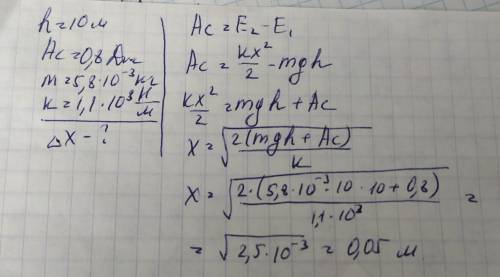 h=10 м
Ac=0,8 Дж
m=5,8·10⁻³ кг
к=1,1·10³ Н/м
△X - ?
Ac = E₂ - E₁
Ac = кx²/2 - mgh
кx²/2 = mgh + Ac
X = √(2(mgh + Ac)/к)
X = √(2·(5,8·10⁻³·10·10 + 0,8)/1,1·10³) =
= √2,5·10⁻³ = 0,05 м